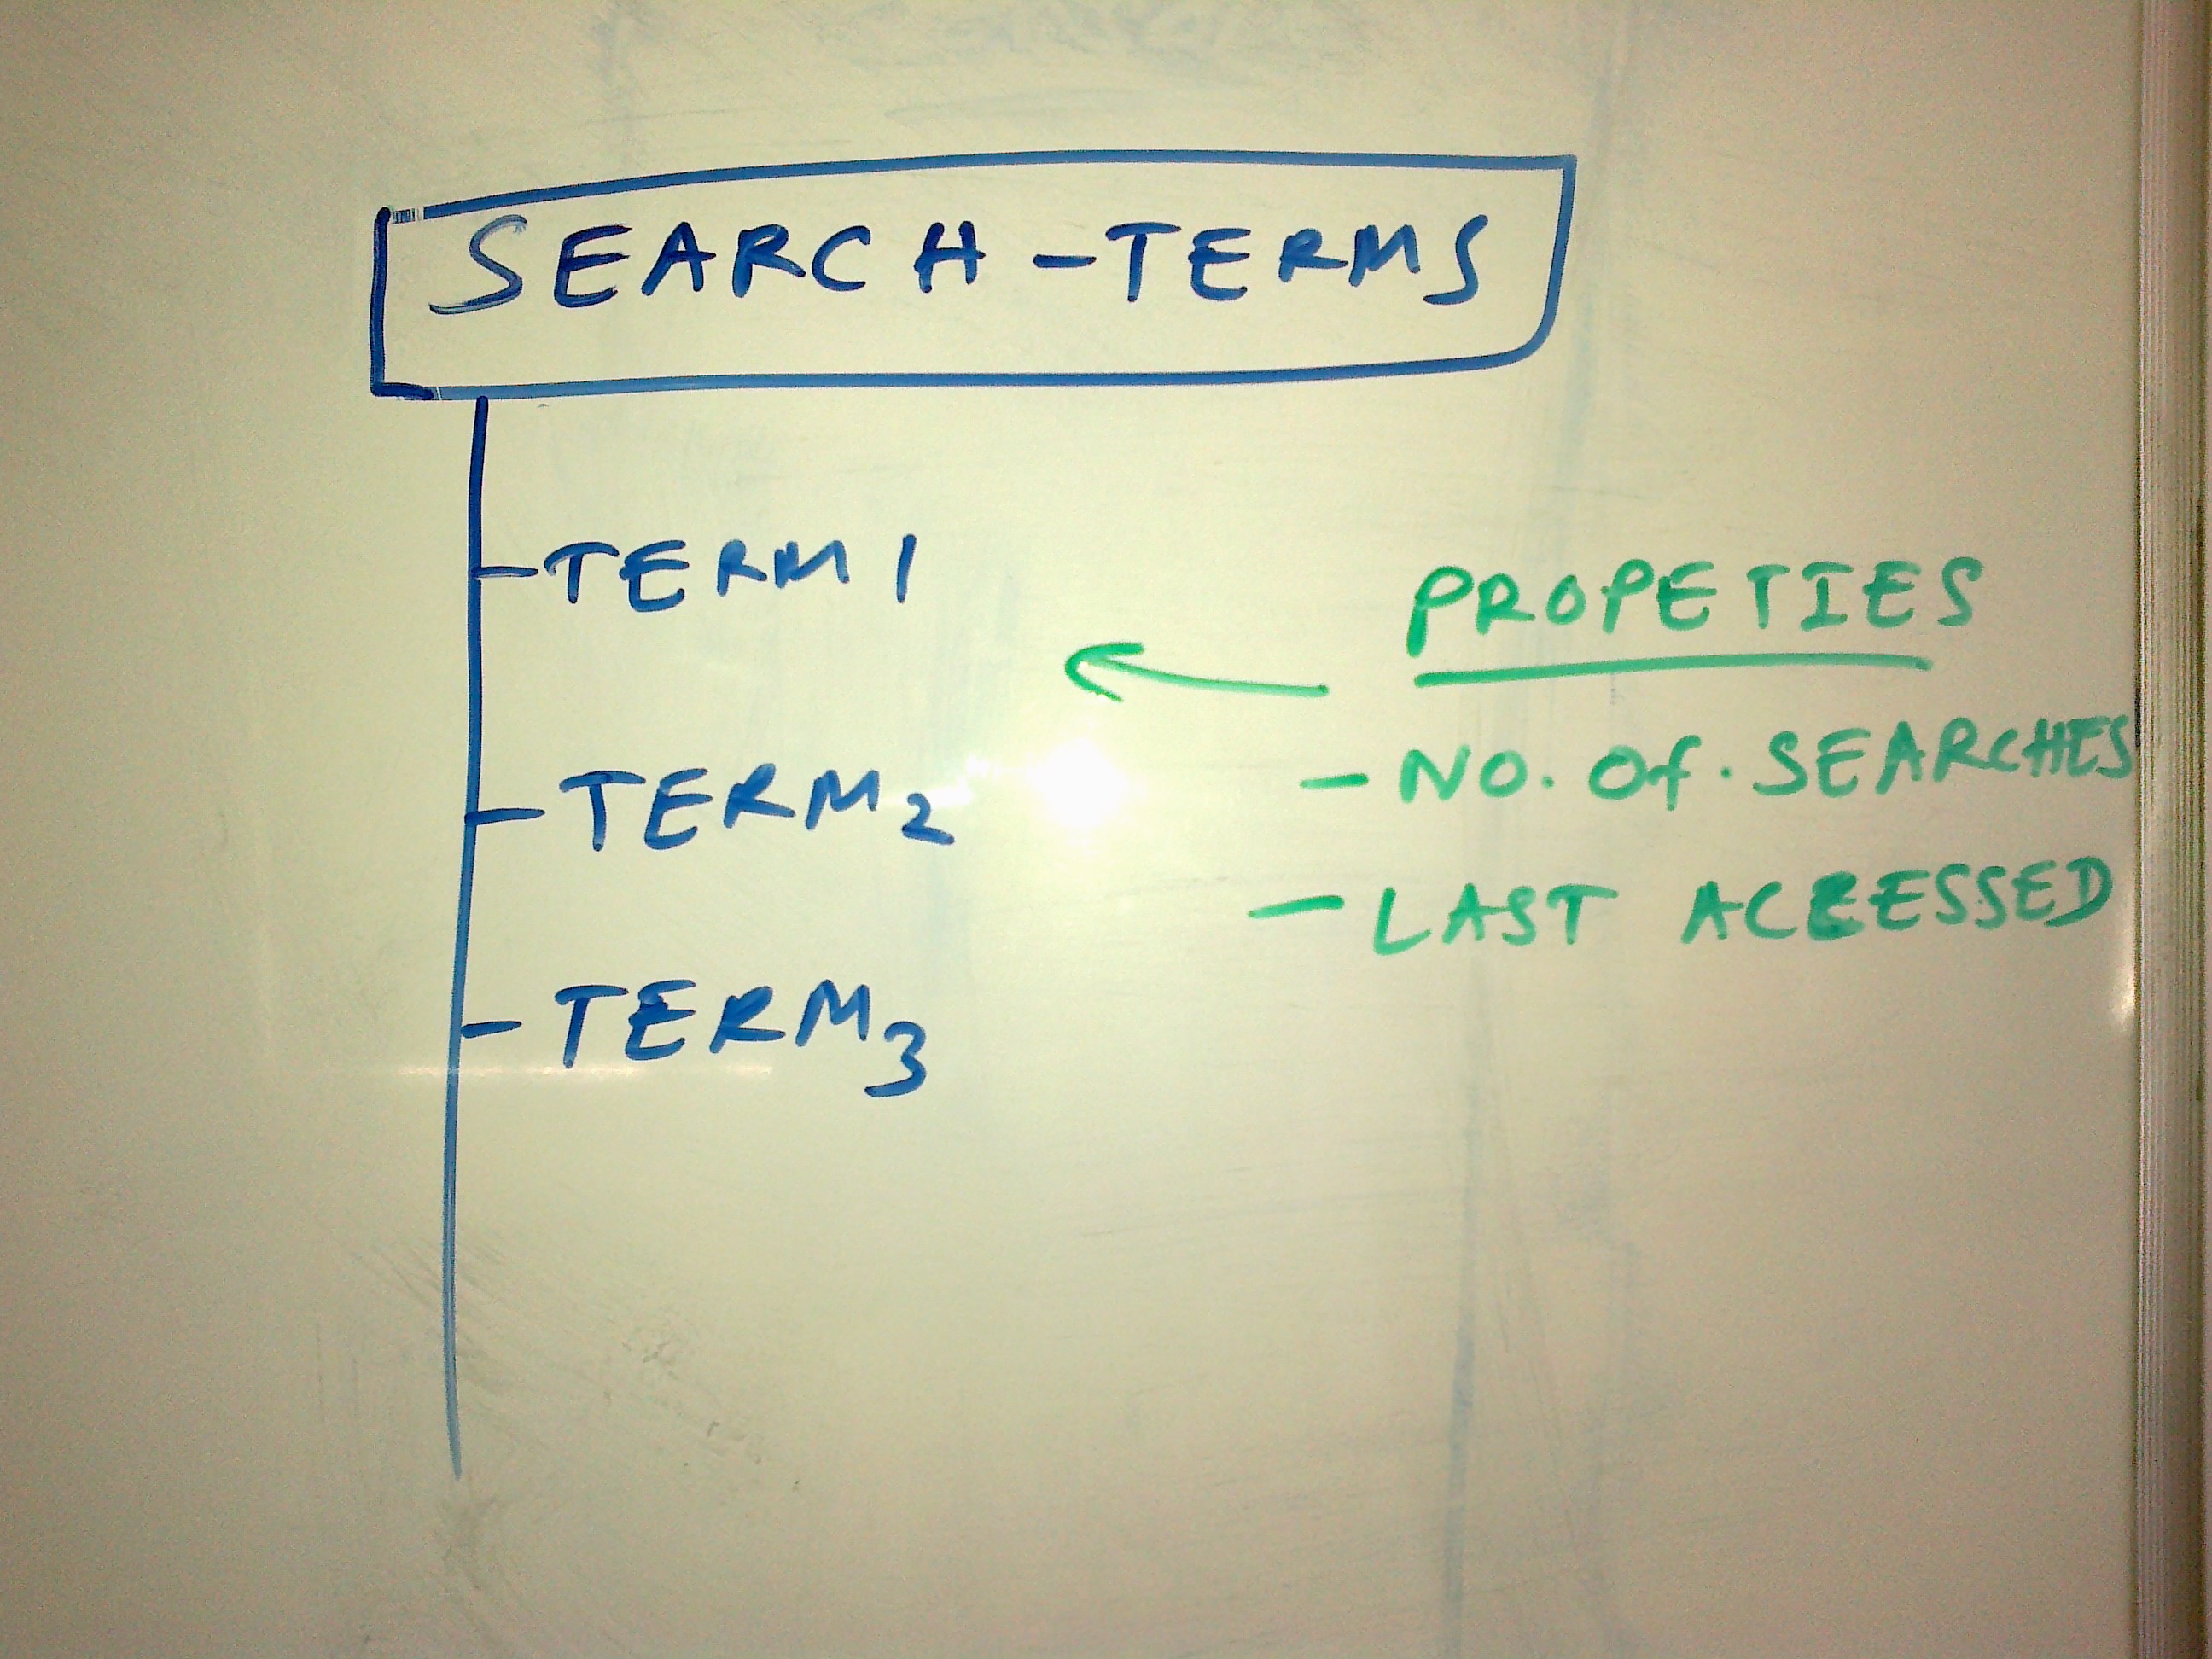 SEARCH-TERMS
TERM 1
TERM 2
TERM 3
PROPETIES
- NO. Of. SEARCHES
- LAST ACCESSED